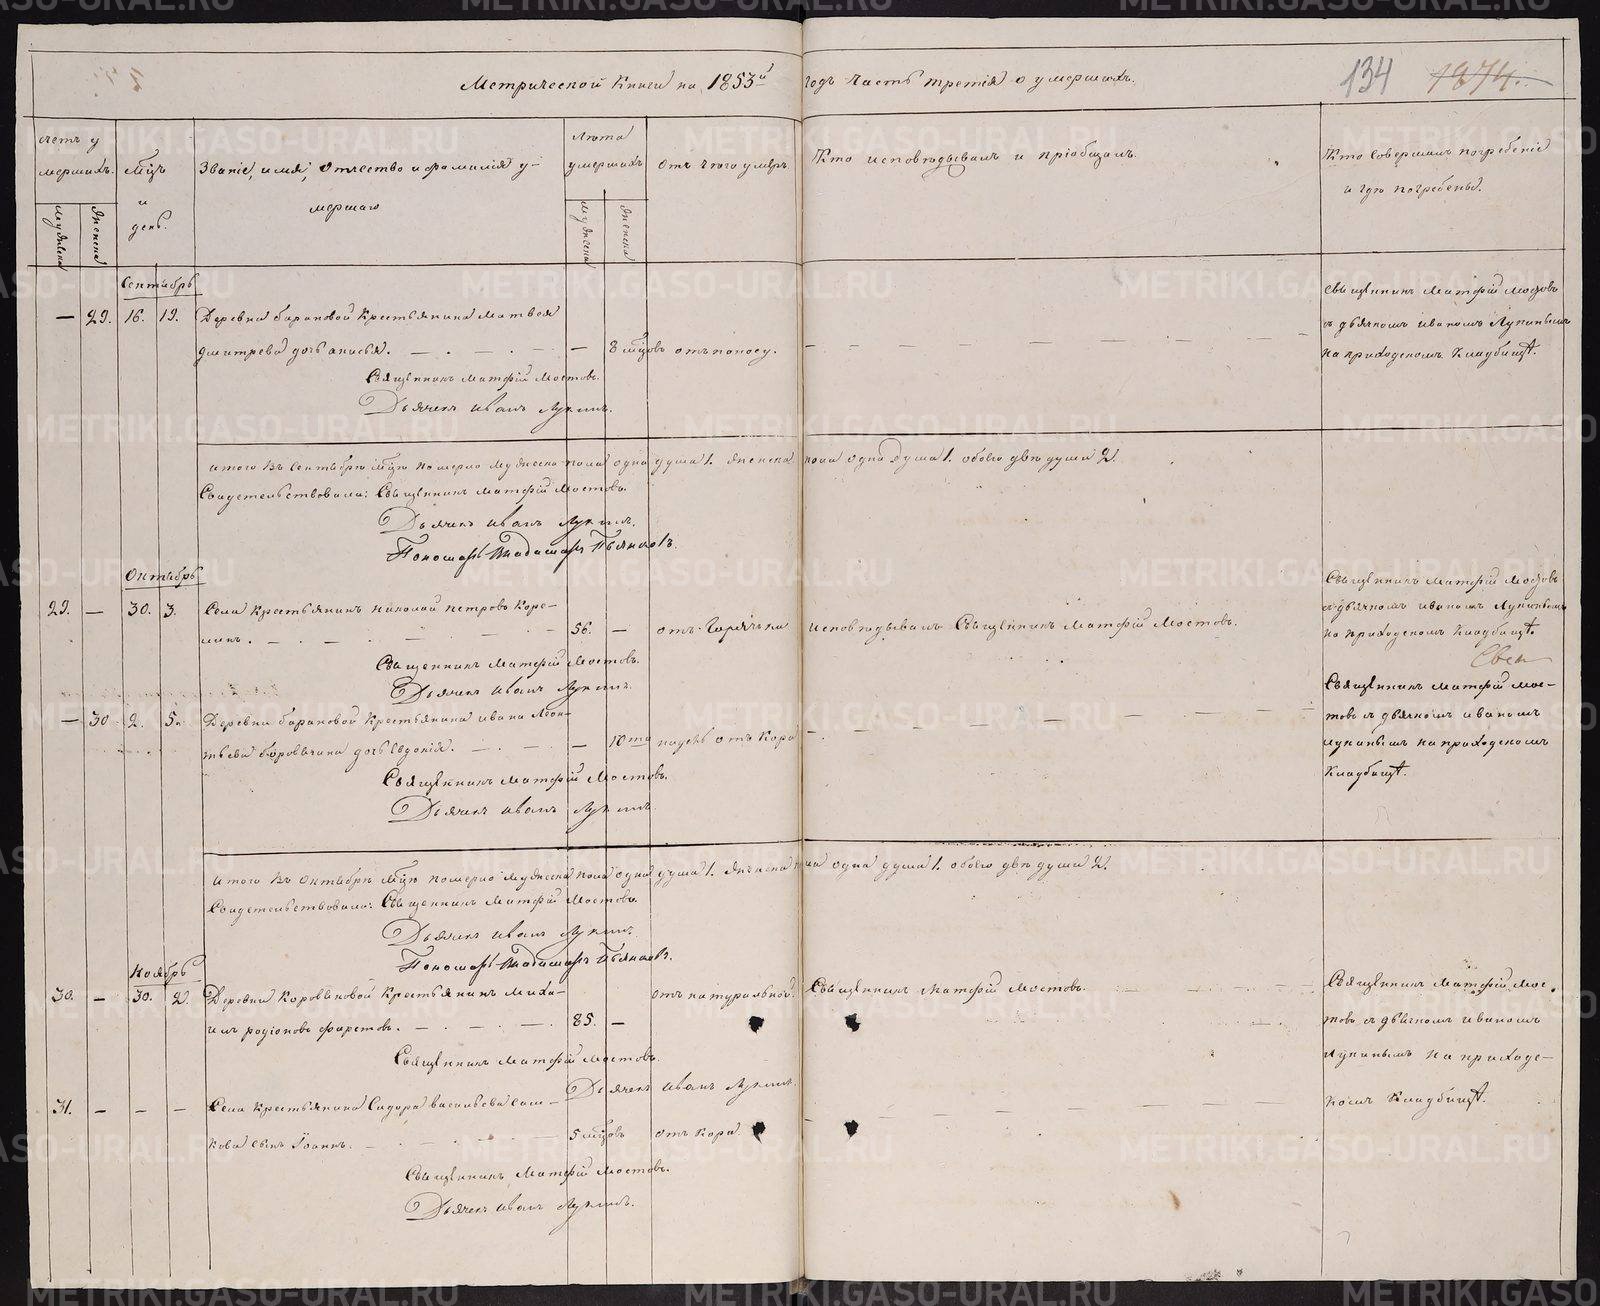 Метрической книги на 1853й годъ часть третія о умершихъ.
134 1874.
Счетъ умершихъ.
мужеска
женска
мцъ и день.
Званіе, имя, отчество и фамилія умершаго
Лѣта умершихъ
мужеска
женска
отъ чего умеръ
Кто исповѣдывалъ и пріобщалъ.
Кто совершалъ погребеніе и гдѣ погребены.
Сентябрь
— 29. 16. 19. Деревни барановой крестьянина Матвея
дмитрева дочь анисья. — 8 мцовъ отъ поносу.
Священникъ Матфій Мостовъ
съ дьячкомъ иваномъ Лукинымъ
на приходскомъ кладбищѣ.
Священникъ Матфій Мостовъ.
Дьячекъ иванъ Лукинъ.
итого въ сентябрѣ мцѣ померло мужеска пола одна душа 1. женска пола одна душа 1. обоего двѣ души 2.
Свидетельствовали: Священникъ Матфій Мостовъ.
Дьячекъ иванъ Лукинъ.
Пономарь Пьянковъ.
Октябрь
29. — 30. 3. Села крестьянинъ николай петровъ Коре-
линъ. 56. — отъ горячки исповѣдывалъ Священникъ Матфій Мостовъ.
Священникъ Матфій Мостовъ
съ дьячкомъ иваномъ Лукинымъ
на приходскомъ кладбищѣ.
Свен
Священникъ Матфій Мостовъ.
Дьячекъ иванъ Лукинъ.
— 30 2. 5. Деревни барановой крестьянина ивана Леон-
тьева дочь евдокія. — 10ти отъ кори
Священникъ Матфій Мос-
товъ съ дьячкомъ иваномъ
лукинымъ на приходскомъ
кладбищѣ.
Священникъ Матфій Мостовъ.
Дьячекъ иванъ Лукинъ
итого въ октябрѣ мцѣ померло мужеска пола одна душа 1. женска пола одна душа 1. обоего двѣ души 2.
Свидетельствовали: Священникъ Матфій Мостовъ.
Дьячекъ иванъ Лукинъ.
Пономарь Пьянковъ.
Ноябрь
30. — 30. 2. Деревни Коровяковой крестьянинъ миха-
илъ родіоновъ 85. — отъ натуральной. Священникъ Матфій Мостовъ.
Священникъ Матфій Мос-
товъ съ дьячкомъ иваномъ
лукинымъ на приходс-
комъ кладбищѣ.
Священникъ Матфій Мостовъ.
Дьячекъ иванъ Лукинъ.
31. — — — Села крестьянина Сидора васильева
сынъ Іоаннъ. 5 мцовъ отъ кори.
Священникъ Матфій Мостовъ.
Дьячекъ иванъ Лукинъ.
METRIKI.GASO-URAL.RU